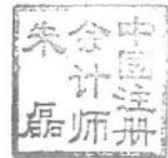 中国注册
会计师
朱磊